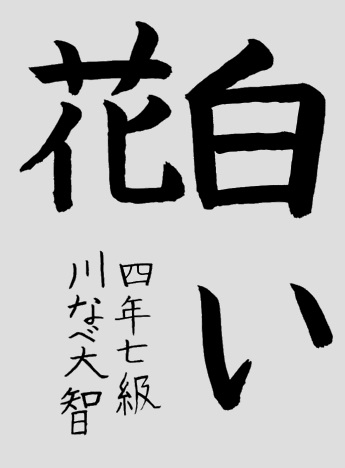 白い
花
四年七級
川なべ大智